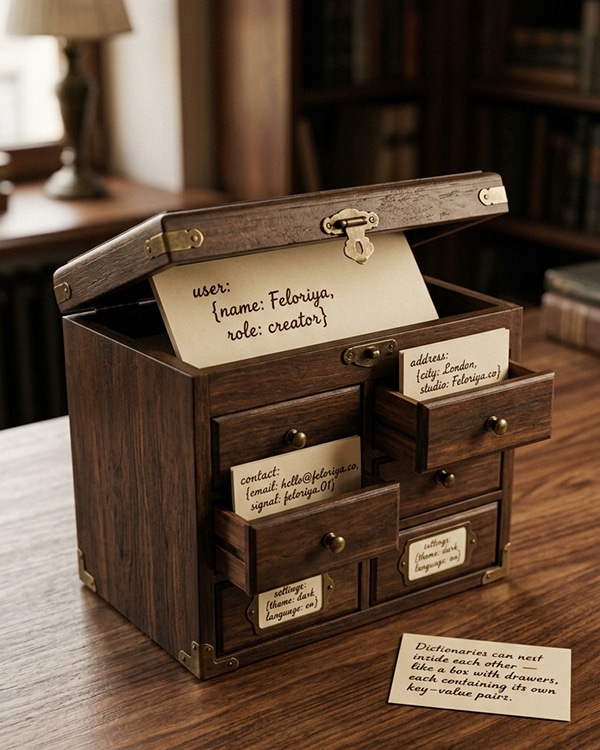 user:
{name: Feloriya,
role: creator}
address:
{city: London,
studio: Feloriya.co}
contact:
{email: hello@feloriya.co,
signal: feloriya.01}
settings:
{theme: dark,
language: en}
{theme: dark,
language: en}
Dictionaries can nest
inside each other —
like a box with drawers,
each containing its own
key–value pairs.